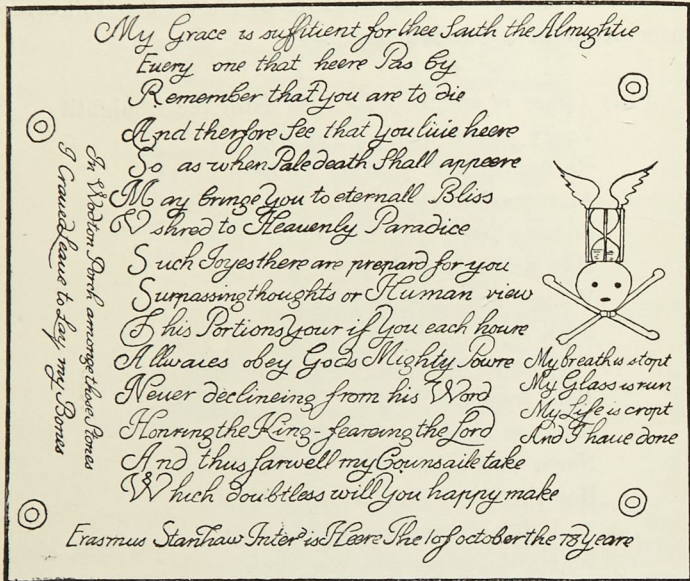 My Grace is suffitient for thee Saith the Almightie
Euery one that heere Pas by
Remember that You are to die
And therfore See that You liue heere
So as when Pale death Shall appeere
May bringe You to eternall Bliss
Vshred to Heauenly Paradice
Such Joyes there are prepard for you
Surpassing thoughts or Human view
This Portions Your if You each houre
Allwaies obey Gods Mighty Powre
Never declineing from his Word
Honring the King - fearing the Lord
And thus farwell my Counsaile take
Which doubtless will You happy make
Erasmus Stanhaw Inter^d is Heere The 1 of october the 78 Yeare
In Wooton Porch amongst those Stones
I Craued Leaue to Lay my Bones
My breath is stopt
My Glass is run
My Life is cropt
And I haue done